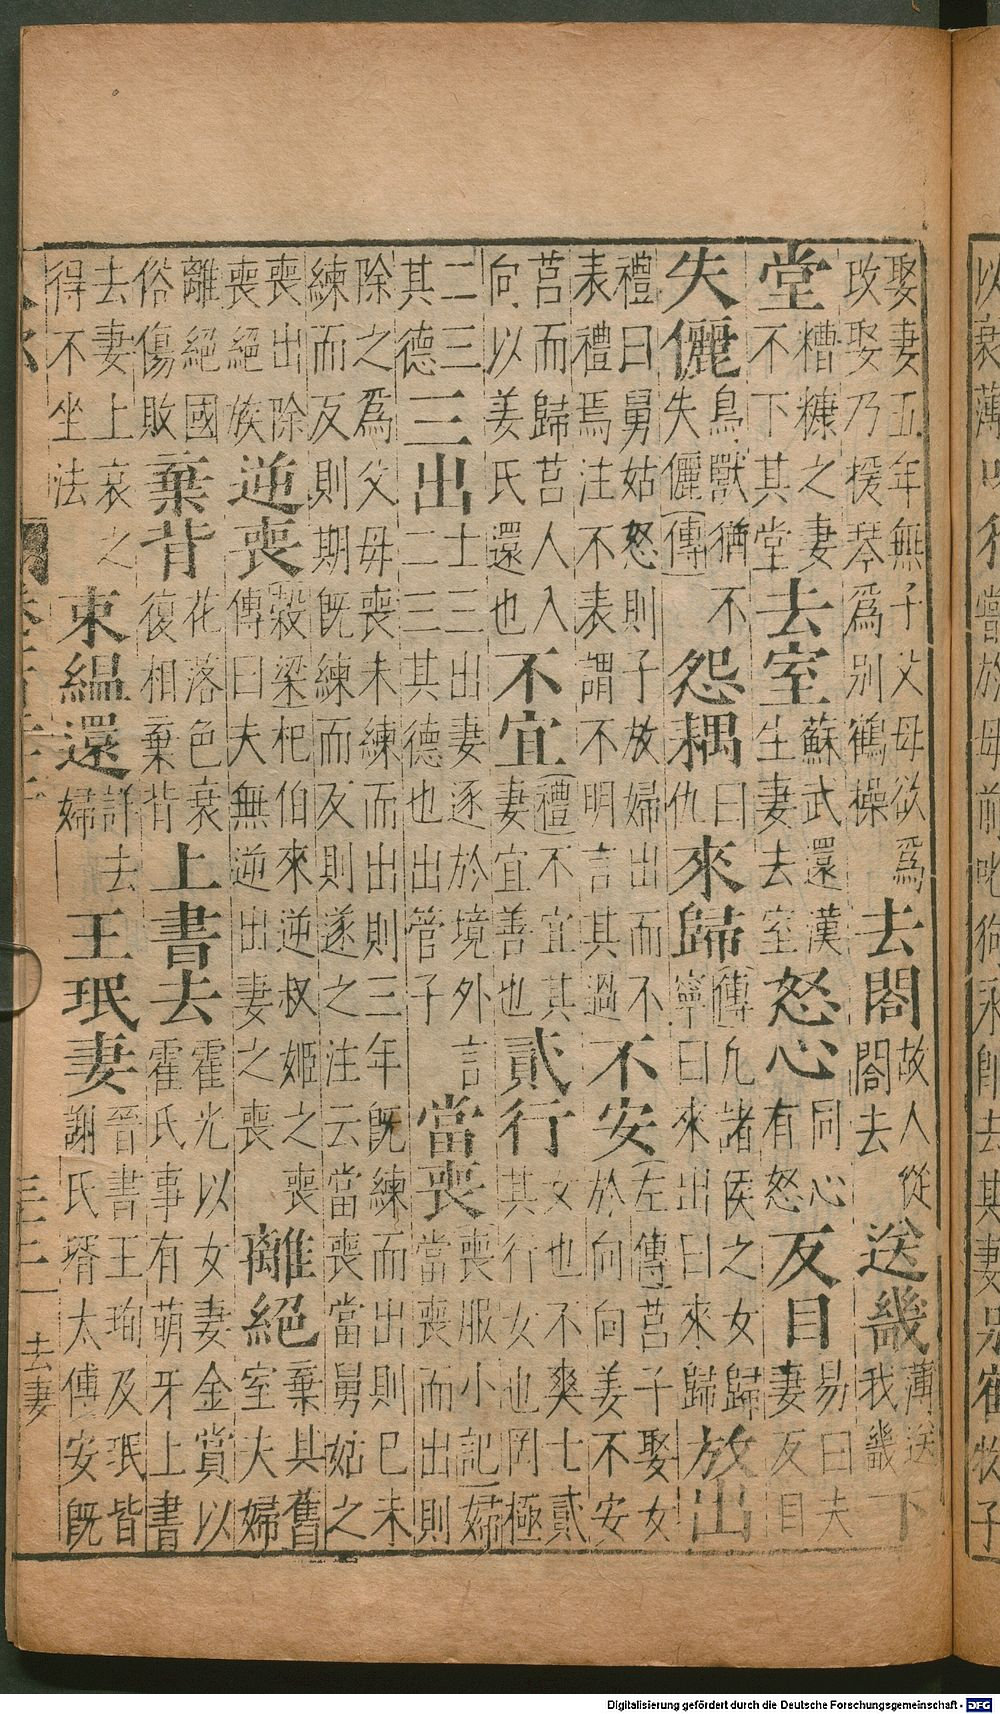 娶妻五年無子父母欲爲改娶乃援琴爲別鶴操去閤故人從閤去送畿薄送我畿下
堂糟糠之妻不下其堂去室蘇武還漢生妻去室怒心同心有怒反目易曰夫妻反目
失儷鳥獸猶不失儷傳怨耦曰仇來歸傳凡諸侯之女歸寧曰來出曰來歸放出
禮曰舅姑怒則子放婦出而不表禮焉注不表謂不明言其過不安左傳莒子娶女於向向姜不安
莒而歸莒人入向以姜氏還也不宜禮不宜其妻宜善也貳行女也不爽士貳其行女也罔極
二三其德三出士三出妻逐於境外言二三其德也出管子當喪喪服小記婦當喪而出則
除之爲父母喪未練而出則三年既練而出則已未練而反則期既練而反則遂之注云當喪當舅姑之
喪出除喪絕族逆喪穀梁杞伯來逆叔姬之喪傳曰夫無逆出妻之喪離絕棄其舊室夫婦
離絕國俗傷敗棄背花落色衰復相棄背上書去霍光以女妻金賞以霍氏事有萌牙上書
去妻上哀之得不坐法束縕還詳去婦王珉妻晉書王珣及珉皆謝氏壻太傅安既
去妻
Digitalisierung gefördert durch die Deutsche Forschungsgemeinschaft - DFG